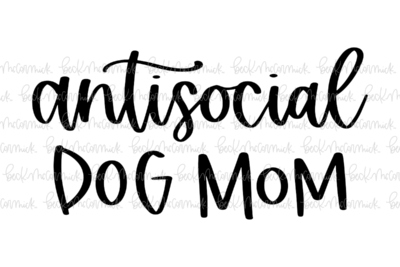 antisocial
DOG MOM